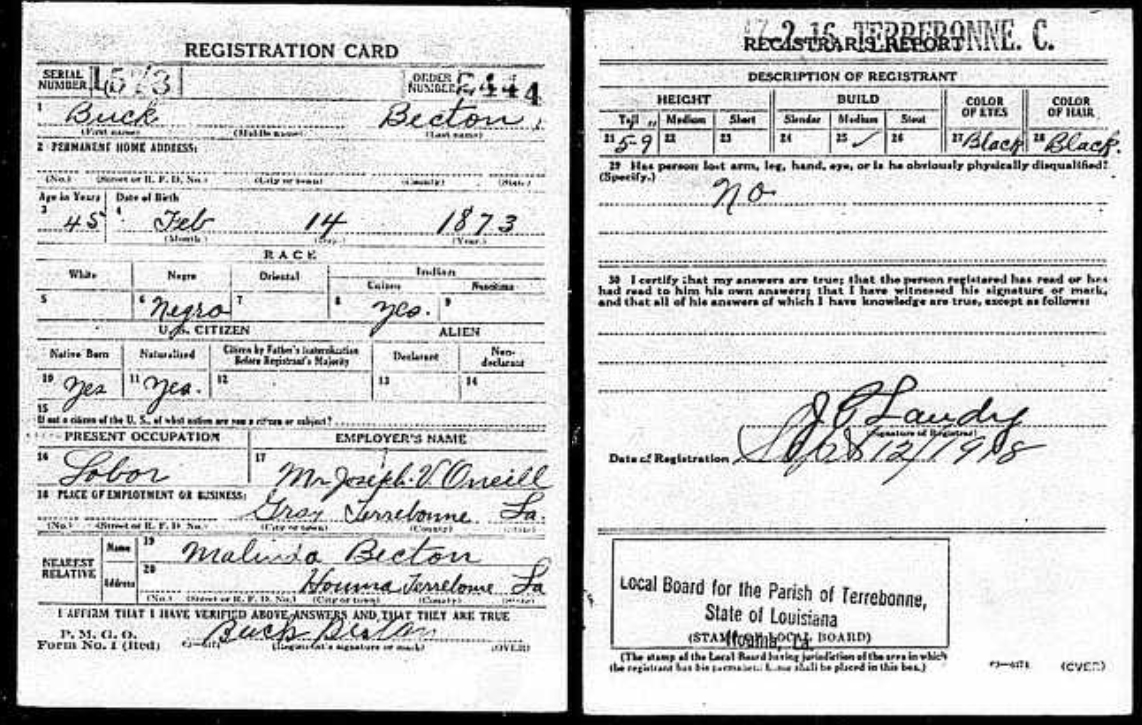 REGISTRATION CARD
SERIAL NUMBER 1573 ORDER NUMBER 2444
1 Buck Becton
(First name) (Middle name) (Last name)
2 PERMANENT HOME ADDRESS:
(No.) (Street or R. F. D. No.) (City or town) (County) (State)
Age in Years Date of Birth
3 45 4 Feb 14 1873
(Month) (Day) (Year)
RACE
White Negro Oriental Indian
Citizen Noncitizen
5 6 Negro 7 8 yes. 9
U. S. CITIZEN ALIEN
Native Born Naturalized Citizen by Father's Naturalization Before Registrant's Majority Declarant Non-declarant
10 Yes 11 Yes. 12 13 14
15
If not a citizen of the U. S., of what nation are you a citizen or subject?
PRESENT OCCUPATION EMPLOYER'S NAME
16 Lobor 17 Mr Joseph. V. Oneill
18 PLACE OF EMPLOYMENT OR BUSINESS:
Gray Terrebonne La.
(No.) (Street or R. F. D. No.) (City or town) (County) (State)
NEAREST RELATIVE Name 19 Malinda Becton
Address 20 Houma Terrebone La
(No.) (Street or R. F. D. No.) (City or town) (County) (State)
I AFFIRM THAT I HAVE VERIFIED ABOVE ANSWERS AND THAT THEY ARE TRUE
P. M. G. O.
Form No. 1 (Red) Buck Becton
(Registrant's signature or mark) (OVER)
17-2-16 TERREBONNE. C.
REGISTRAR'S REPORT
DESCRIPTION OF REGISTRANT
HEIGHT BUILD COLOR OF EYES COLOR OF HAIR
Tall Medium Short Slender Medium Stout
21 5-9 22 23 24 25 / 26 27 Black 28 Black.
29 Has person lost arm, leg, hand, eye, or is he obviously physically disqualified?
(Specify.) no
30 I certify that my answers are true; that the person registered has read or has
had read to him his own answers; that I have witnessed his signature or mark,
and that all of his answers of which I have knowledge are true, except as follows:
Landry
(Signature of Registrar)
Date of Registration 12/1918
Local Board for the Parish of Terrebonne,
State of Louisiana
Houma, La.
(STAMP OF LOCAL BOARD)
(The stamp of the Local Board having jurisdiction of the area in which
the registrant has his permanent home shall be placed in this box.)
(OVER)